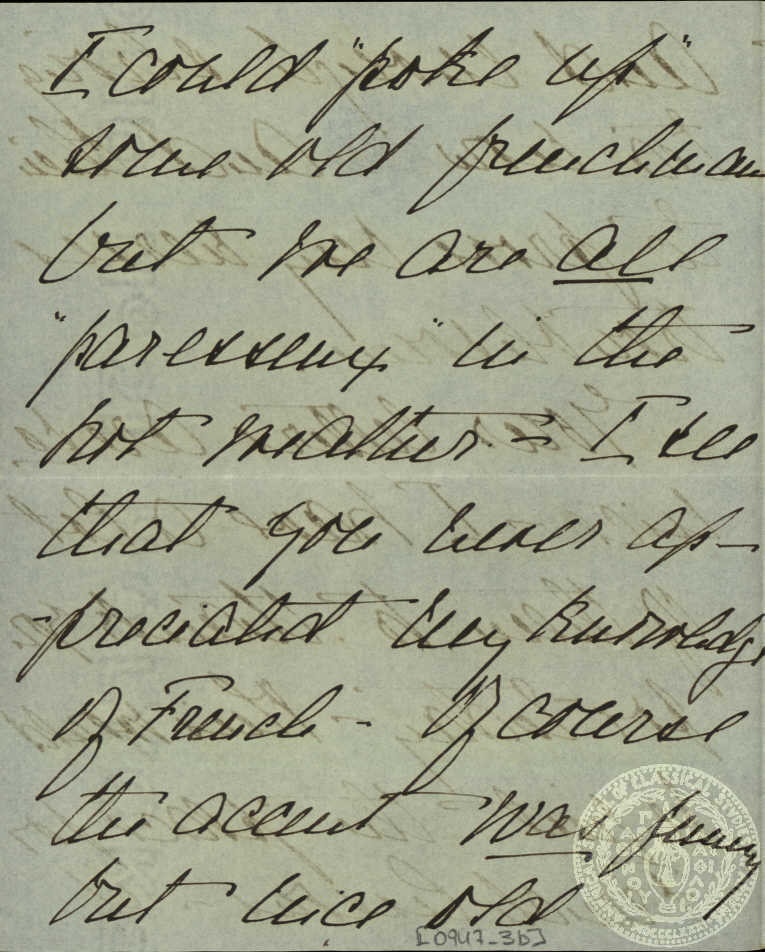 I could "poke up"
some old frenchman
but we are all
"paresseux" in the
hot weather = I see
that you never ap-
-preciated my knowledge
of French - Of course
the accent was funny
but nice old
[0947_3b]
OF CLASSICAL STUDIES